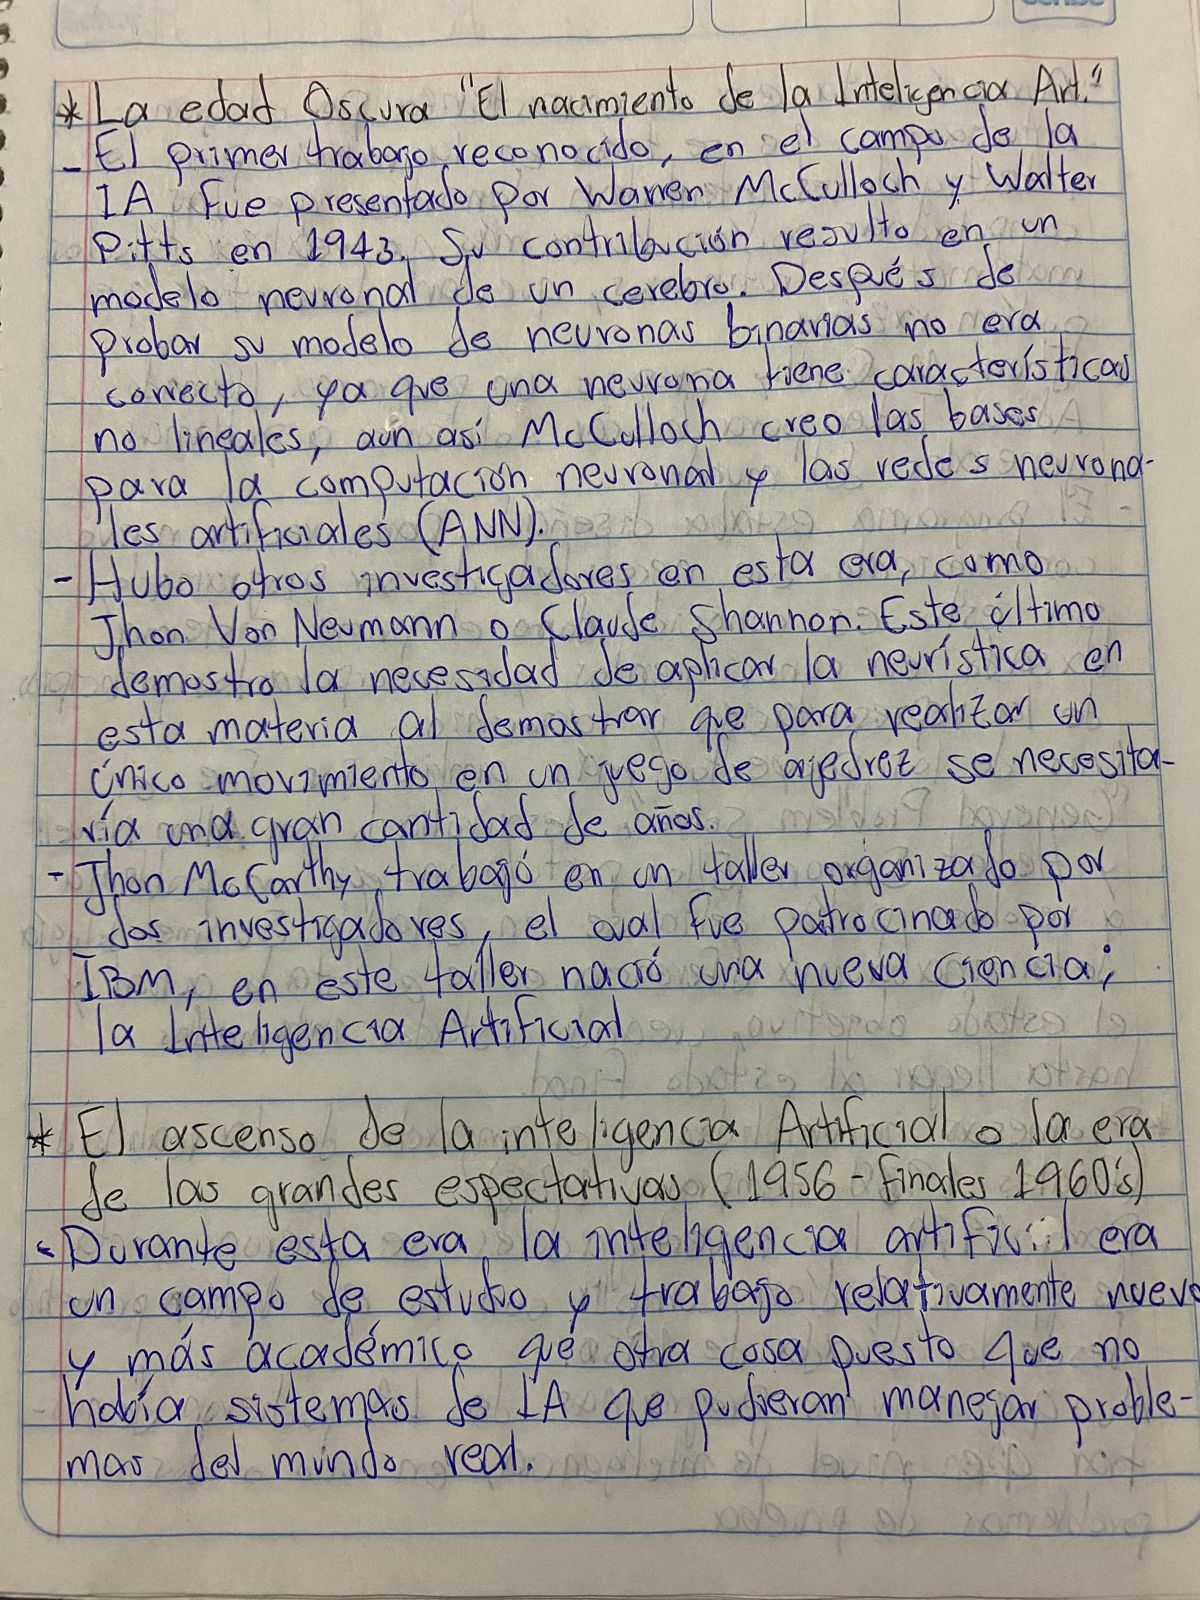 * La edad Oscura "El nacimiento de la Inteligencia Art."
- El primer trabajo reconocido, en el campo de la
IA fue presentado por Warren McCulloch y Walter
Pitts en 1943. Su contribución resulto en un
modelo neuronal de un cerebro. Después de
probar su modelo de neuronas binarias no era
correcto, ya que una neurona tiene características
no lineales, aún así McCulloch creo las bases
para la computación neuronal y las redes neurona-
les artificiales (ANN).
- Hubo otros investigadores en esta era, como
Jhon Von Neumann o Claude Shannon. Este último
demostro la necesidad de aplicar la neurística en
esta materia al demostrar que para realizar un
único movimiento en un juego de ajedrez se necesita-
ría una gran cantidad de años.
- Jhon McCarthy trabajó en un taller organizado por
dos investigadores, el cual fue patrocinado por
IBM, en este taller nació una nueva ciencia;
la Inteligencia Artificial
* El ascenso de la inteligencia Artificial o la era
de las grandes espectativas (1956 - finales 1960's)
- Durante esta era, la inteligencia artificial era
un campo de estudio y trabajo relativamente nuevo
y más académico que otra cosa puesto que no
había sistemas de IA que pudieran manejar proble-
mas del mundo real.